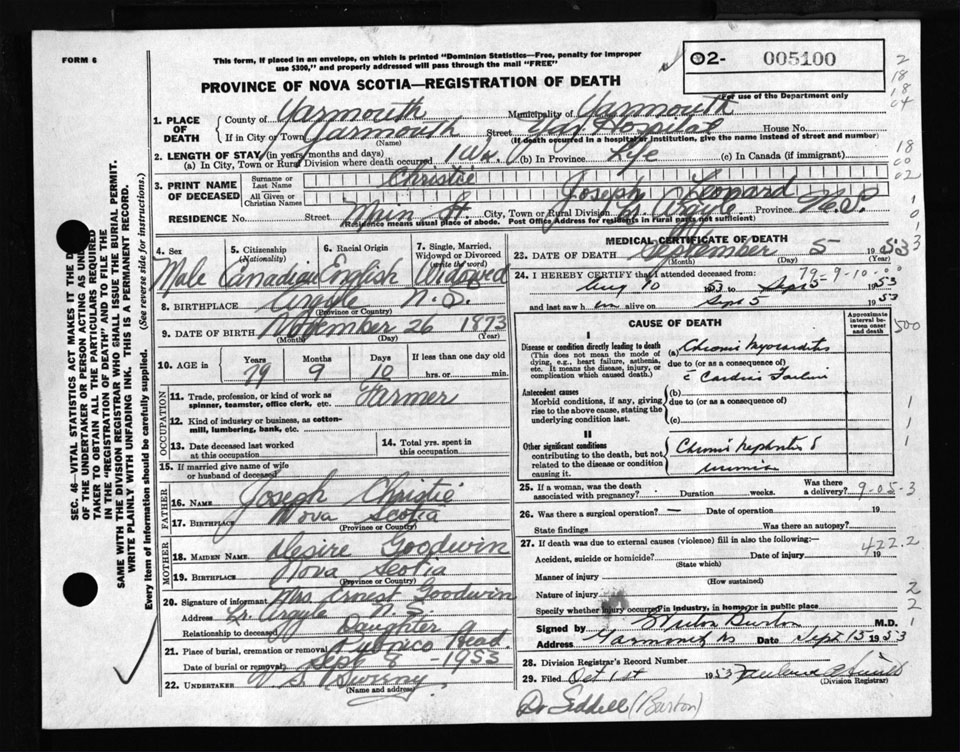 FORM 6
This form, if placed in an envelope, on which is printed "Dominion Statistics—Free, penalty for improper
use $300," and properly addressed will pass through the mail "FREE"
02- 005100
For use of the Department only
PROVINCE OF NOVA SCOTIA—REGISTRATION OF DEATH
1. PLACE OF DEATH
County of Yarmouth Municipality of Yarmouth
If in City or Town Yarmouth Street Hospital House No.
(Name) (If death occurred in a hospital or institution, give the name instead of street and number)
2. LENGTH OF STAY (in years, months and days)
(a) In City, Town or Rural Division where death occurred 1 (b) In Province Life (c) In Canada (if immigrant)
3. PRINT NAME OF DECEASED
Surname or Last Name Christie
All Given or Christian Names Joseph Leonard
RESIDENCE No. Street Main St. City, Town or Rural Division Lr. Argyle Province N.S.
(Residence means usual place of abode. Post Office Address for residents in rural parts not sufficient)
4. Sex Male
5. Citizenship (Nationality) Canadian
6. Racial Origin English
7. Single, Married, Widowed or Divorced (write the word) Widowed
8. BIRTHPLACE Argyle N.S.
(Province or Country)
9. DATE OF BIRTH November 26 1873
(Month) (Day) (Year)
10. AGE in Years Months Days If less than one day old
79 9 10 hrs. or min.
OCCUPATION
11. Trade, profession, or kind of work as
spinner, teamster, office clerk, etc. Farmer
12. Kind of industry or business, as cotton-
mill, lumbering, bank, etc.
13. Date deceased last worked
at this occupation
14. Total yrs. spent in
this occupation
15. If married give name of wife
or husband of deceased
FATHER
16. NAME Joseph Christie
17. BIRTHPLACE Nova Scotia
(Province or Country)
MOTHER
18. MAIDEN NAME Desire Goodwin
19. BIRTHPLACE Nova Scotia
(Province or Country)
20. Signature of informant Mrs Ernest Goodwin
Address Lr. Argyle N.S.
Relationship to deceased Daughter
21. Place of burial, cremation or removal Pubnico Head
Date of burial or removal Sept 8 - 1953
22. UNDERTAKER V. S. Sweeny
(Name and address)
MEDICAL CERTIFICATE OF DEATH
23. DATE OF DEATH September 5 1953
(Month) (Day) (Year)
24. I HEREBY CERTIFY that I attended deceased from:
79-9-10
Aug 10 1953 to Sept 5 1953
and last saw h im alive on Sept 5 1953
CAUSE OF DEATH
Approximate interval between onset and death
I
Disease or condition directly leading to death
(This does not mean the mode of
dying, e.g., heart failure, asthenia,
etc. It means the disease, injury, or
complication which caused death.)
(a) Chronic Myocarditis
due to (or as a consequence of)
c̄ Cardiac Failure
Antecedent causes
Morbid conditions, if any, giving
rise to the above cause, stating the
underlying condition last.
(b)
due to (or as a consequence of)
(c)
II
Other significant conditions
contributing to the death, but not
related to the disease or condition
causing it.
Chronic Nephritis &
uremia
25. If a woman, was the death
associated with pregnancy? Duration weeks. Was there a delivery?
9-05-3
26. Was there a surgical operation? — Date of operation 19
State findings Was there an autopsy?
27. If death was due to external causes (violence) fill in also the following:—
422.2
Accident, suicide or homicide? Date of injury 19
(State which)
Manner of injury
(How sustained)
Nature of injury
Specify whether injury occurred in industry, in home, or in public place
Signed by Burton M.D.
Address Yarmouth NS Date Sept 15 1953
28. Division Registrar's Record Number
29. Filed Oct 1st 1953
(Division Registrar)
Dr Siddell (Burton)
SEC. 46—VITAL STATISTICS ACT MAKES IT THE
OF THE UNDERTAKER OR PERSON ACTING AS
TAKER TO OBTAIN ALL THE PARTICULARS REQUIRED
IN THE "REGISTRATION OF DEATH" AND TO FILE THE
SAME WITH THE DIVISION REGISTRAR WHO SHALL ISSUE THE BURIAL PERMIT.
WRITE PLAINLY WITH UNFADING INK. THIS IS A PERMANENT RECORD.
Every item of Information should be carefully supplied. (See reverse side for instructions.)
2
18
18
04
18
00
02
500
1
1
1
2
2
1